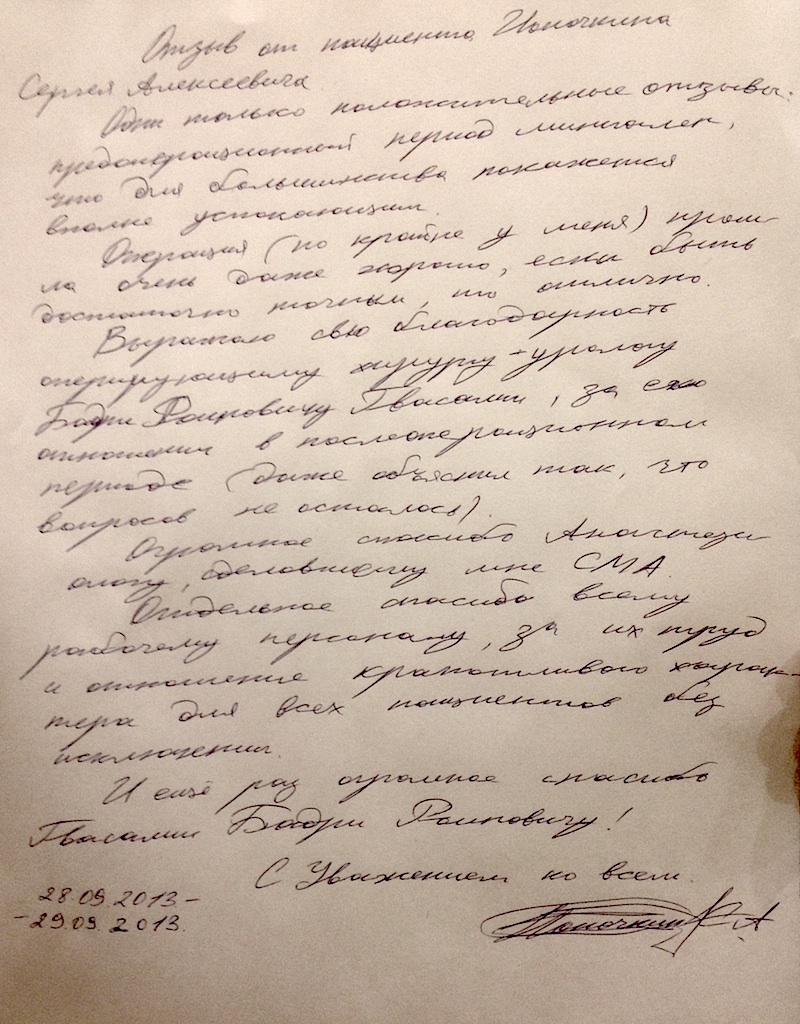 Отзыв от пациента Попочкина
Сергея Алексеевича
Одни только положительные отзывы:
предоперационный период минимален,
что для большинства покажется
вполне успокающим.
Операция (по крайне у меня) прош-
ла очень даже хорошо, если быть
достаточно точным, то отлично.
Выражаю свою благодарность
оперирующему хирургу-урологу
Бадри Роиновичу Гвасалии, за его
отношении в послеоперационном
периоде (даже объяснил так, что
вопросов не осталось).
Огромное спасибо Анастези
ологу, сделовшему мне СМА.
Отдельное спасибо всему
рабочему персоналу, за их труд
и отношение кропотливого харак-
тера для всех пациентов без
исключении.
И ещё раз огромное спасибо
Гвасалии Бадри Роиновичу!
С Уважением ко всем.
28.09.2013-
-29.09.2013.
С.А